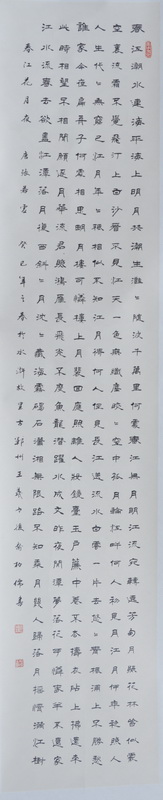 春江潮水連海平海上明月共潮生灩〻隨波千萬里何處春江無月明江流宛轉遶芳甸月照花林皆似霰
空裏流霜不覺飛汀上白沙看不見江天一色無纖塵皎〻空中孤月輪江畔何人初見月江月何年初照人
人生代〻無窮已江月年〻祗相似不知江月待何人但見長江送流水白雲一片去悠〻青楓浦上不勝愁
誰家今夜扁舟子何處相思明月樓可憐樓上月裴回應照離人妝鏡臺玉戶簾中卷不去擣衣砧上拂還來
此時相望不相聞願逐月華流照君鴻雁長飛光不度魚龍潛躍水成文昨夜閒潭夢落花可憐春半不還家
江水流春去欲盡江潭落月復西斜〻月沉〻藏海霧碣石瀟湘無限路不知乘月幾人歸落月搖情滿江樹
春江花月夜 唐張若虛 癸巳年之春於水滸故里古鄆州王